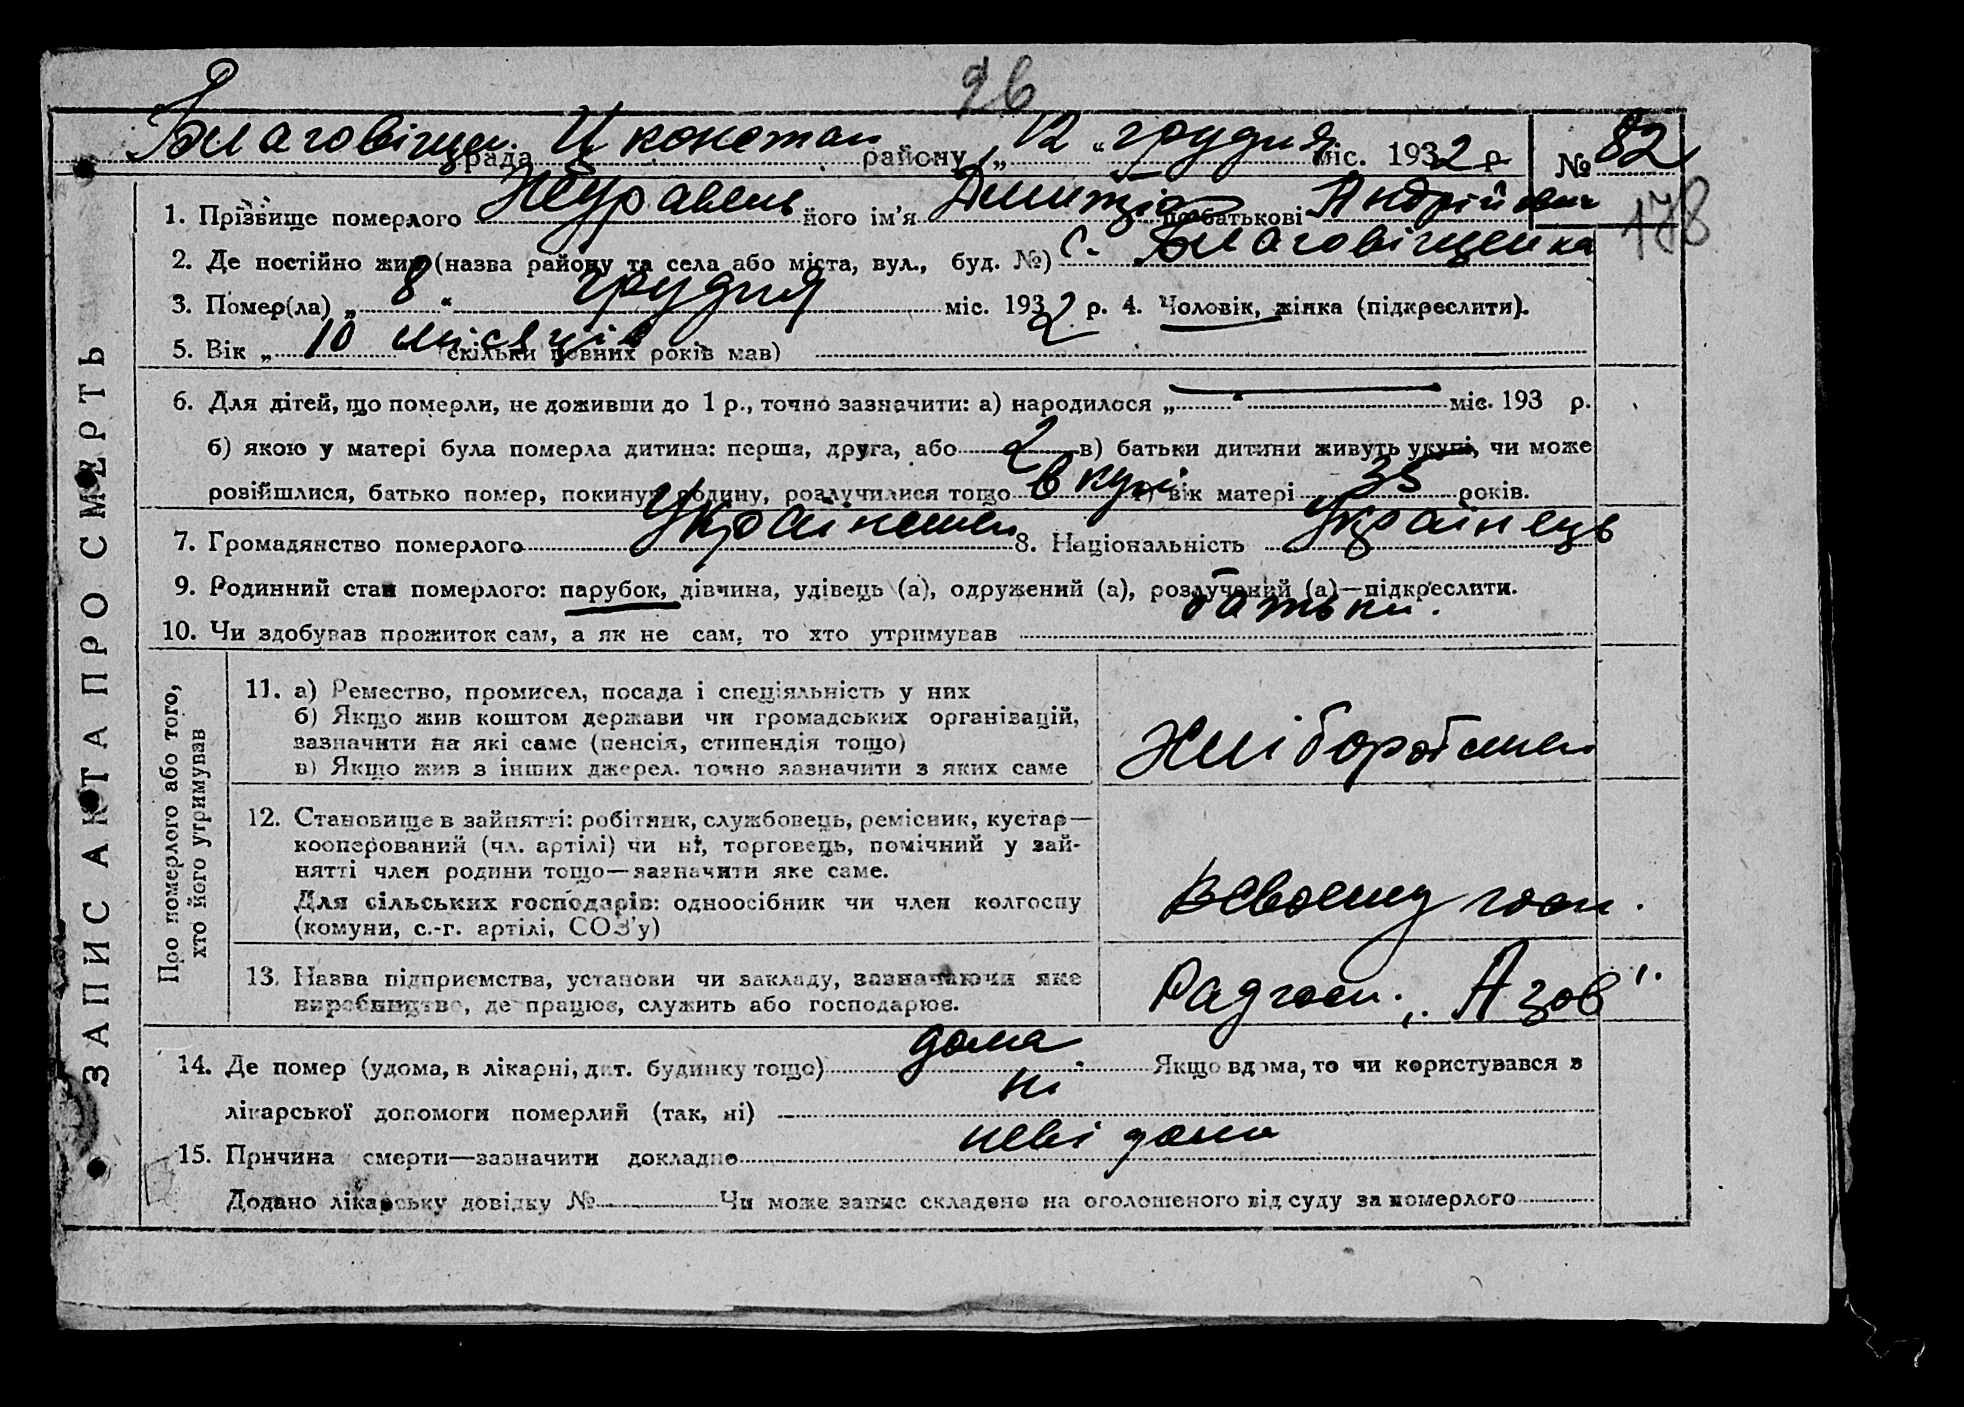 96
Благовіщен. рада Ц констан району „12" грудня міс. 1932 р. № 82
1. Прізвище померлого Журавель його ім'я Дмитро по батькові Андрійович 178
2. Де постійно жив (назва району та села або міста, вул., буд. №) с. Благовіщенка
3. Помер(ла) „8" грудня міс. 1932 р. 4. Чоловік, жінка (підкреслити).
5. Вік „10 місяців" (скільки повних років мав)
6. Для дітей, що померли, не доживши до 1 р., точно зазначити: а) народилося „ " міс. 193 р.
б) якою у матері була померла дитина: перша, друга, або 2 в) батьки дитини живуть укупі, чи може
розійшлися, батько помер, покинув родину, розлучилися тощо вкупі г) вік матері 35 років.
7. Громадянство померлого Українське 8. Національність Українець
9. Родинний стан померлого: парубок, дівчина, удівець (а), одружений (а), розлучений (а)—підкреслити.
10. Чи здобував прожиток сам, а як не сам, то хто утримував батьки.
ЗАПИС АКТА ПРО СМЕРТЬ
Про померлого або того, хто його утримував
11. а) Ремество, промисел, посада і спеціяльність у них
б) Якщо жив коштом держави чи громадських організацій,
зазначити на які саме (пенсія, стипендія тощо)
в) Якщо жив з інших джерел. точно зазначити з яких саме
Хлібороб
12. Становище в зайнятті: робітник, службовець, ремісник, кустар—
кооперований (чл. артілі) чи ні, торговець, помічний у зай-
нятті член родини тощо—зазначити яке саме.
Для сільських господарів: одноосібник чи член колгоспу
(комуни, с.-г. артілі, СОЗ'у)
В своєму госп.
13. Назва підприємства, установи чи закладу, зазначаючи яке
виробництво, де працює, служить або господарює.
Радгосп. „Азов"
14. Де помер (удома, в лікарні, дит. будинку тощо) дома. Якщо вдома, то чи користувався з
лікарської допомоги померлий (так, ні) ні
15. Причина смерти—зазначити докладно невідома
Додано лікарську довідку № Чи може запис складено на оголошеного від суду за померлого